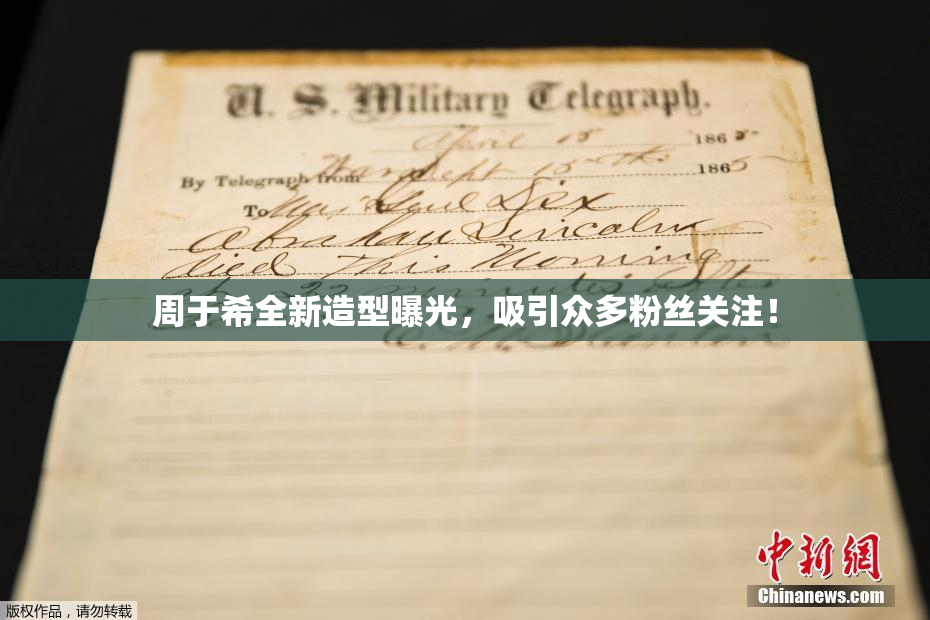 U. S. Military Telegraph.
April 15 1865
By Telegraph from War Dept 15th 1865
To Maj Genl Dix
Abraham Lincoln
died This Morning
at 22 minutes after
周于希全新造型曝光，吸引众多粉丝关注！
E. M. Stanton
中新網
Chinanews.com
版权作品，请勿转载